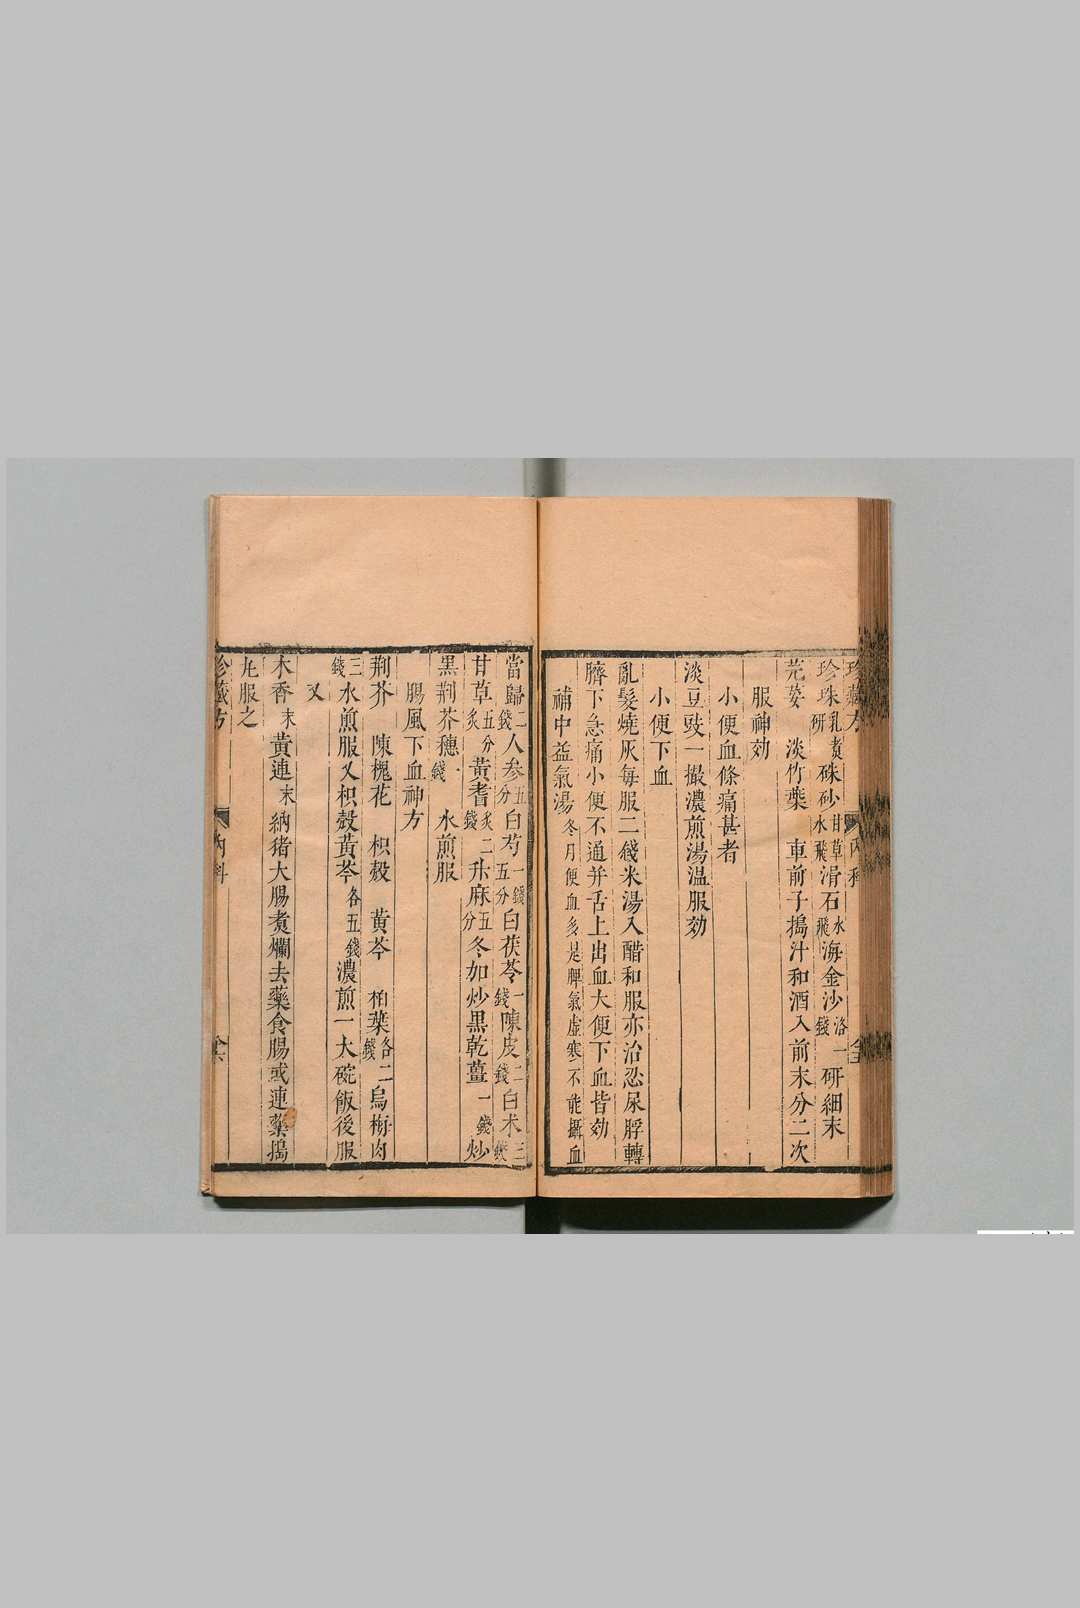 珍藏方 內科 仝五
珍珠乳研 煮硃砂甘草水飛滑石水飛海金沙洛一錢研細末
芫荽 淡竹葉 車前子搗汁和酒入前末分二次
服神効
小便血條痛甚者
淡豆豉一撮濃煎湯温服効
小便下血
亂髮燒灰每服二錢米湯入醋和服亦治忍尿脬轉
臍下急痛小便不通并舌上出血大便下血皆効
補中益氣湯冬月便血多是脾氣虛寒不能攝血
當歸二錢人参五分白芍一錢五分白茯苓一錢陳皮二錢白术三錢
甘草五分炙黃耆炙二錢升麻五分冬加炒黑乾薑一錢炒
黑荆芥穗一錢 水煎服
腸風下血神方
荆芥 陳槐花 枳殼 黃芩 柏葉各二錢烏梅肉
三錢水煎服又枳殼黃芩各五錢濃煎一大碗飯後服
又
木香末黃連末納猪大腸煮爛去藥食腸或連藥搗
丸服之
珍藏方 內科 仝六